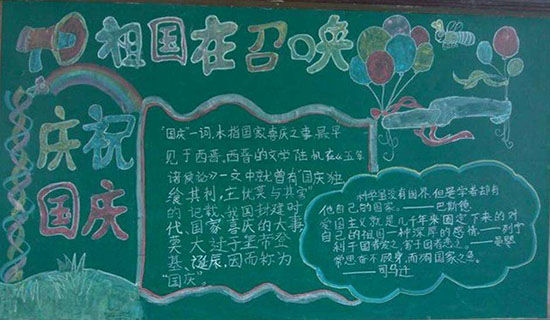 祖国在召唤
庆祝
国庆
"国庆"一词,本指国家喜庆之事,最早
见于西晋,西晋的文学陆机在《五等
诸侯论》一文中就曾有"国庆独
飨其利,主忧莫与其害"
的记载、我国封建时
代、国家喜庆的大事
莫大过于皇帝登
基、诞辰,因而称为
"国庆"。
科学虽没有国界,但是学者却有
他自己的国家。——巴斯德
爱国主义就是几千年来固定下来的对
自己的祖国一种深厚的感情。——列宁
利于国者爱之,害于国者恶之。——晏婴
常思奋不顾身,而殉国家之急。
——司马迁